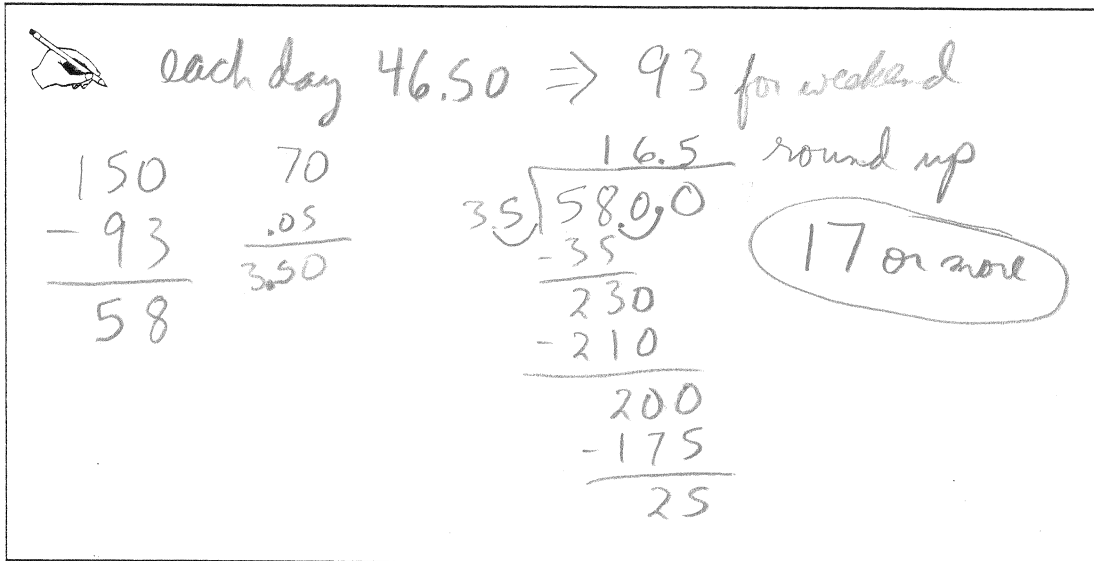 each day 46.50 ⇒ 93 for weekend
150
- 93
58
70
.05
3.50
16.5
3.5)58.0,0
-35
230
-210
200
-175
25
round up
17 or more